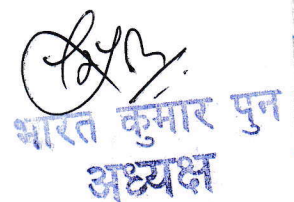 भारत कुमार पुन
अध्यक्ष